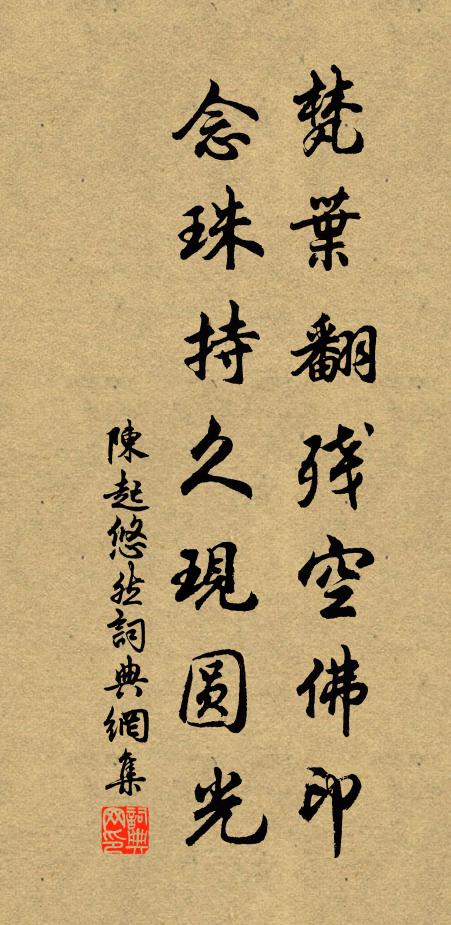 梵葉翻残空佛印
念珠持久現圆光
陳起悠然詞典網集
詞典
网印